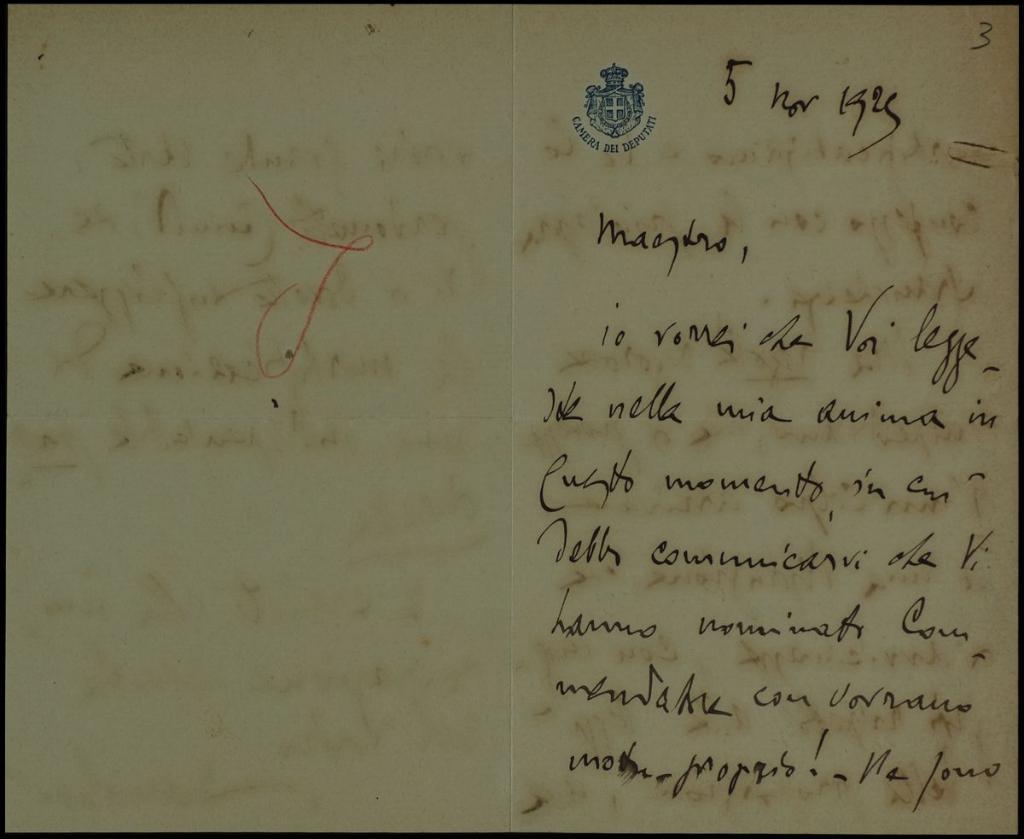 3
5 Nov 1925
CAMERA DEI DEPUTATI
Maestro,
io vorrei che Voi legge-
ste nella mia anima in
questo momento, in cui
debbo comunicarvi che Vi
hanno nominato Com-
mendatore con sovrano
motu-proprio! - Ne sono